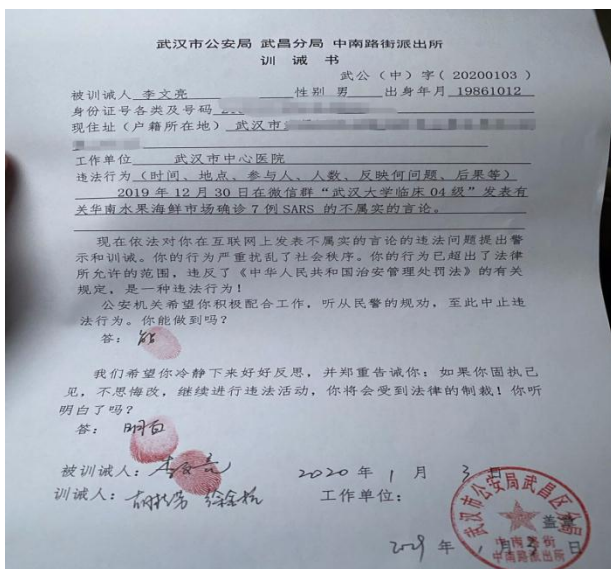 武汉市公安局 武昌分局 中南路街派出所
训 诫 书
武公(中)字(20200103)
被训诫人 李文亮 性别 男 出身年月 19861012
身份证号各类及号码
现住址(户籍所在地) 武汉市
工作单位 武汉市中心医院
违法行为(时间、地点、参与人、人数、反映何问题、后果等)
2019 年 12 月 30 日在微信群“武汉大学临床 04 级”发表有
关华南水果海鲜市场确诊 7 例 SARS 的不属实的言论。
现在依法对你在互联网上发表不属实的言论的违法问题提出警
示和训诫。你的行为严重扰乱了社会秩序。你的行为已超出了法律
所允许的范围,违反了《中华人民共和国治安管理处罚法》的有关
规定,是一种违法行为!
公安机关希望你积极配合工作,听从民警的规劝,至此中止违
法行为。你能做到吗?
答: 能
我们希望你冷静下来好好反思,并郑重告诫你:如果你固执己
见,不思悔改,继续进行违法活动,你将会受到法律的制裁!你听
明白了吗?
答: 明白
被训诫人: 李文亮 2020 年 1 月 3 日
训诫人: 工作单位:
武汉市公安局武昌区分局
盖章
中南路街
派出所
年 1 月 3 日